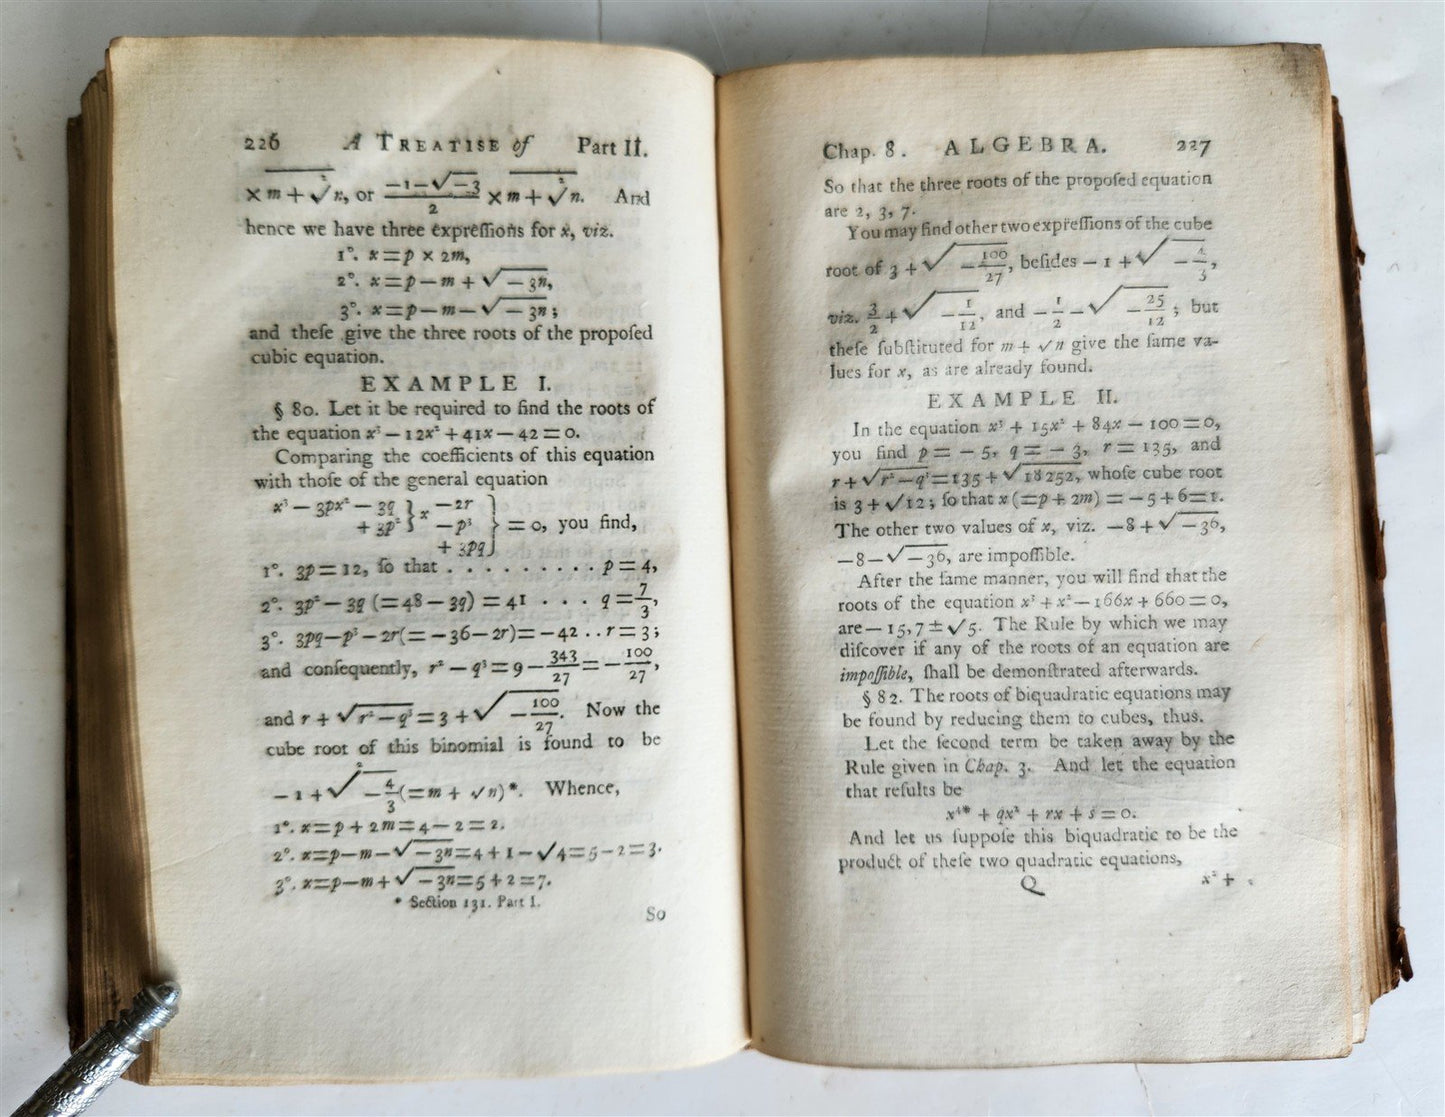 226 A TREATISE of Part II.
× m + √n, or (−1−√−3)/2 × m + √n. And
hence we have three expreſſions for x, viz.
1°. x = p × 2m,
2°. x = p − m + √−3n,
3°. x = p − m − √−3n;
and theſe give the three roots of the propoſed
cubic equation.
EXAMPLE I.
§ 80. Let it be required to find the roots of
the equation x³ − 12x² + 41x − 42 = 0.
Comparing the coefficients of this equation
with thoſe of the general equation
x³ − 3px² − 3q } x − 2r }
+ 3p² } − p³ } = 0, you find,
+ 3pq }
1°. 3p = 12, ſo that . . . . . . . . . p = 4,
2°. 3p² − 3q (= 48 − 3q) = 41 . . . q = 7/3,
3°. 3pq − p³ − 2r (= −36 − 2r) = −42 . . r = 3;
and conſequently, r² − q³ = 9 − 343/27 = − 100/27,
and r + √r² − q³ = 3 + √− 100/27. Now the
cube root of this binomial is found to be
− 1 + √− 4/3 (= m + √n)*. Whence,
1°. x = p + 2m = 4 − 2 = 2.
2°. x = p − m − √−3n = 4 + 1 − √4 = 5 − 2 = 3.
3°. x = p − m + √−3n = 5 + 2 = 7.
* Section 131. Part I.
So
Chap. 8. ALGEBRA. 227
So that the three roots of the propoſed equation
are 2, 3, 7.
You may find other two expreſſions of the cube
root of 3 + √− 100/27, beſides − 1 + √− 4/3,
viz. 3/2 + √− 1/12, and − 1/2 − √− 25/12; but
theſe ſubſtituted for m + √n give the ſame va-
lues for x, as are already found.
EXAMPLE II.
In the equation x³ + 15x² + 84x − 100 = 0,
you find p = − 5, q = − 3, r = 135, and
r + √r² − q³ = 135 + √18252, whoſe cube root
is 3 + √12; ſo that x (= p + 2m) = − 5 + 6 = 1.
The other two values of x, viz. −8 + √−36,
−8 − √−36, are impoſſible.
After the ſame manner, you will find that the
roots of the equation x³ + x² − 166x + 660 = 0,
are − 15, 7 ± √5. The Rule by which we may
diſcover if any of the roots of an equation are
impoſſible, ſhall be demonſtrated afterwards.
§ 82. The roots of biquadratic equations may
be found by reducing them to cubes, thus.
Let the ſecond term be taken away by the
Rule given in Chap. 3. And let the equation
that reſults be
x⁴* + qx² + rx + s = 0.
And let us ſuppoſe this biquadratic to be the
product of theſe two quadratic equations,
Q x² +